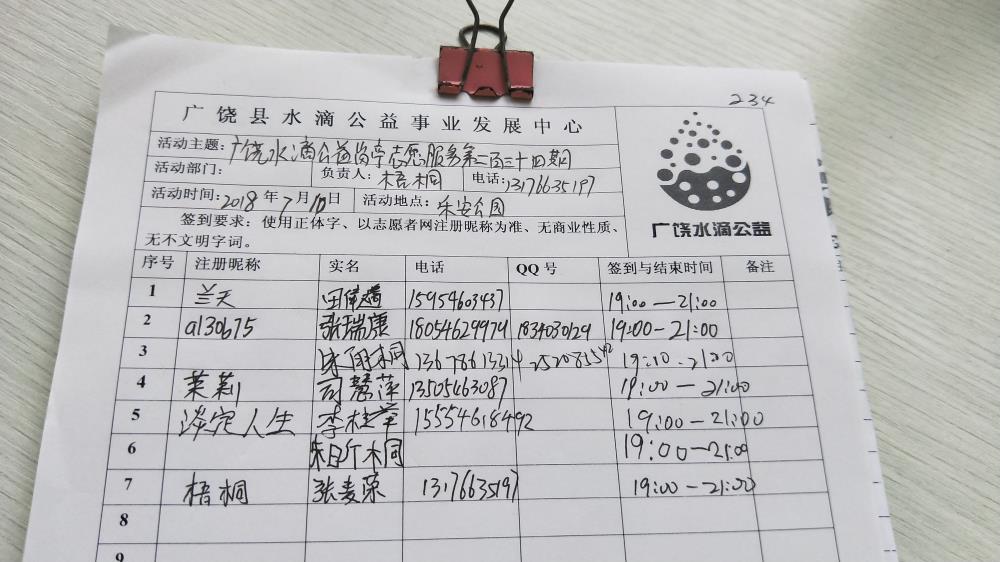 234
广饶县水滴公益事业发展中心
活动主题:广饶水滴公益岗亭志愿服务第二百三十四期
活动部门: 负责人:梧桐 电话:13176635197
活动时间:2018年7月10日 活动地点:乐安公园
广饶水滴公益
签到要求:使用正体字、以志愿者网注册昵称为准、无商业性质、
无不文明字词。
序号 注册昵称 实名 电话 QQ号 签到与结束时间 备注
1 兰天 田 15954603437 19:00—21:00
2 a130675 张瑞康 18054629974 1834030129 19:00-21:00
3 19:10-21:00
4 茉莉 司慧萍 13505463087 19:00—21:00
5 淡定人生 李桂 15554618492 19:00-21:00
6 19:00-21:00
7 梧桐 张麦荣 13176635197 19:00-21:00
8
9